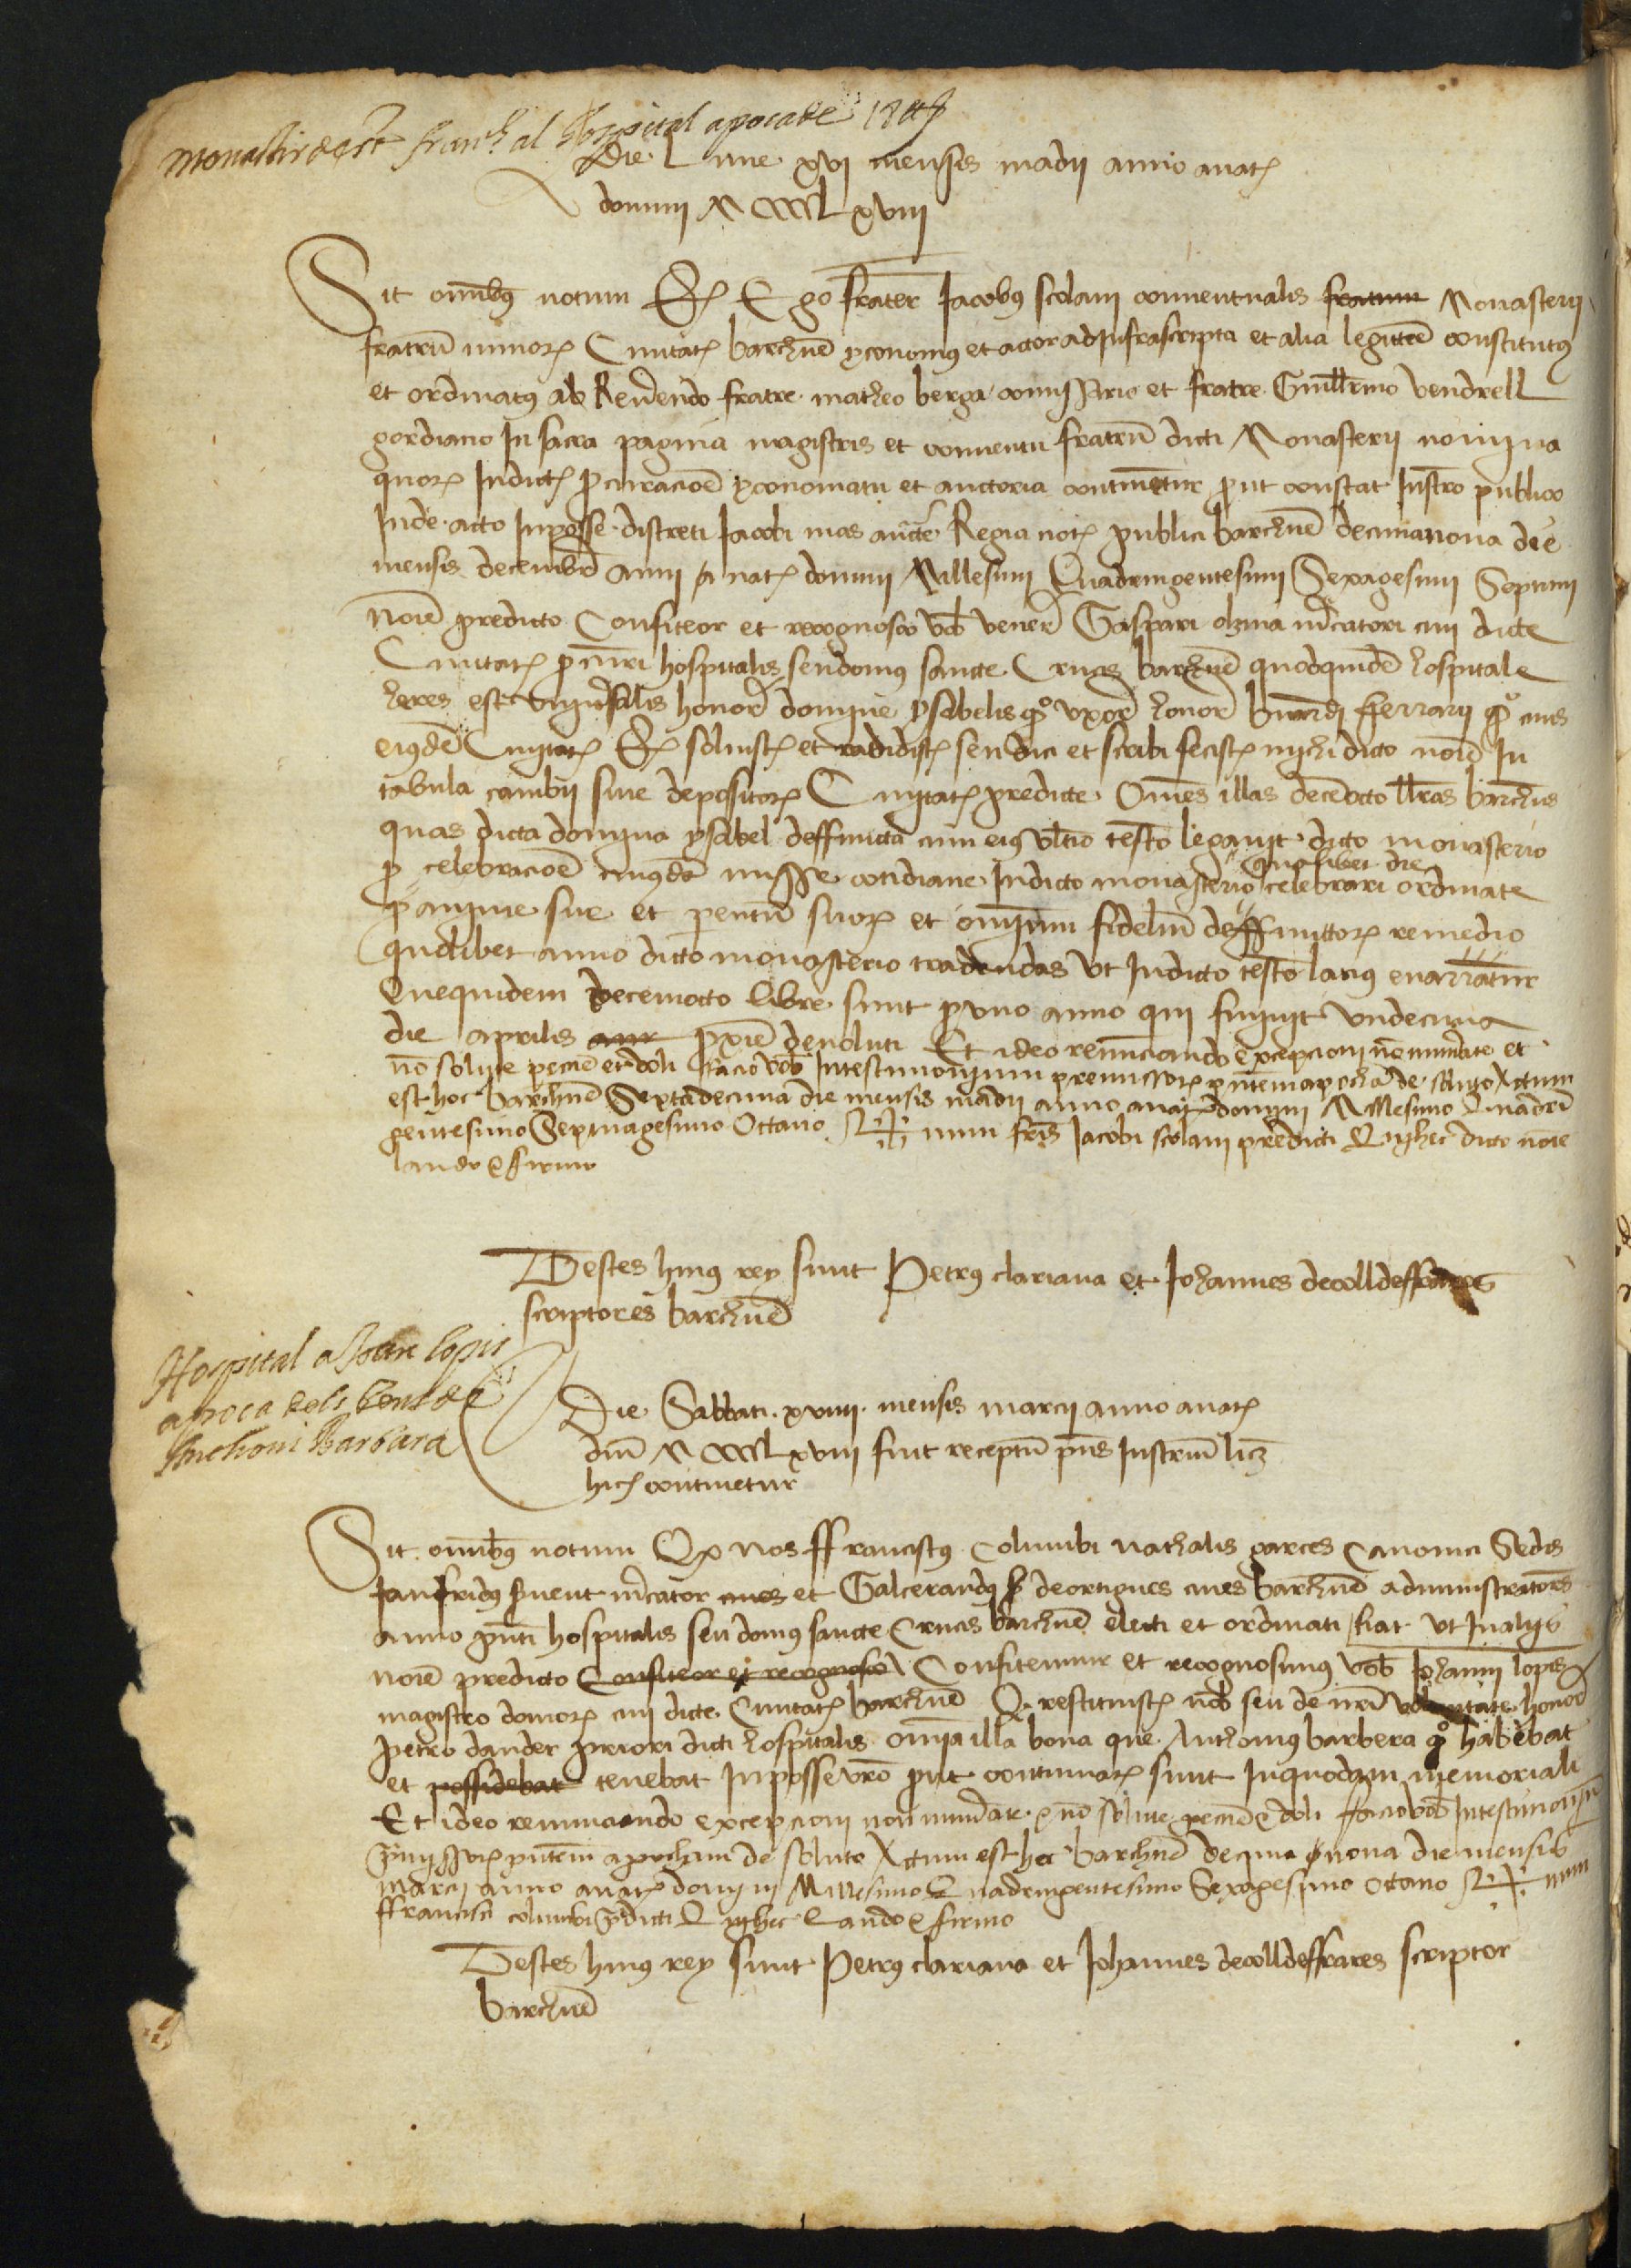 monastir de st franch al hospital apoca de 18 ll
Die Lune xvj mensis madij anno a natj
domini M CCCC L xviij
Sit omnibus notum Qz Ego frater Jacobus scolani conventualis fratrum Monasterij
fratrum minorz Civitatj barchne yconomus et actor ad Infrascripta et alia legittime constitutus
et ordinatus ab Reverendo fratre matheo berga comissario et fratre Guillermo vendrell
gordiano In sacra pagina magistris et conventu fratrum dicti Monasterij nomina
quorz In dictj procuracioe yconomatu et auctoria continentur prout constat Instro publico
Inde acto In posse discreti Jacobi mas aucte Regia notj publici barchne decimanona die
mensis decembr anni a natj domini Millesimi Quadringentesimi Sexagesimi Septimi
Noie predicto Confiteor et recognosco vob vener Gaspari olzina mercatori civi dicte
Civitatj procuri hospitalis seu domus sancte Crucis barchne quodquidem hospitale
heres est universalis honor domine ysabelis qo uxor honor bnardi fferrarij qo civis
eiusde Civitatj Qz solvistj et tradidistj seu dici et scribi fecistj michi dicto noie In
tabula cambij sive depositorz Civitatj predicte Omes illas decem octo llras barchns
quas dicta domina ysabel deffuncta cum eius ultio testo legavit dicto monasterio
p celebracioe cuiusda misse cotidiane In dicto monasterio qualibet die celebrari ordinate
p anime sue et parentum suorz et omnium fidelium deffunctorz remedio
quolibet anno dicto monasterio tradendas ut In dicto testo latius enarratur
Que quidem decem octo libre sunt p uno anno qui finivit undecima
die aprilis anr pxie devoluti Et ideo renunciando excepcioni no numerate et
no solute pecune et doli ffacio vob In testimonium premissorz pntem apocha de soluto Actum
est hoc barchne Sextadecima die mensis madij anno a natj domini Millesimo Quadrin
gentesimo Sexuagesimo Octavo Sig+num fris Jacobi scolani predicti Qui hec dicto noie
laudo & firmo
Testes huius rey sunt Petrus clariana et Johannes de colldeffrares
scriptores barchne
Hospital a Joan lopis
apoca dels bens de
Anthoni Barbara
Die Sabbati xviiij mensis marcij anno a natj
dni M CCCC L xviij fuit receptum pns Instrum licz
hicj continetur
Sit omnibus notum Qz nos ffranciscus Columbi nathalis garces Canonici Sedis
Janfridus sirvent mercator cives et Galcerandus de ortigues cives barchne administratores
anno pnti hospitalis seu domus sancte Crucis barchne electi et ordinati fiat ut In alijs
noie predicto Confiteor et recognosco Confitemur et recognosimus vob Johanni lopis
magistro domorz civi dicte Civitatj barchne Qz restituistj nob seu de nra voluntate honor
petro dander priori dicti hospitalis omia illa bona que Anthonius barbera qo habebat
et possidebat tenebat In posse vro prout continuatz sunt In quodam memoriali
Et ideo renunciando excepcioni non numerate & no solute pecune & doli ffacio vob In testimonium
pmissorz pntem apocham de soluto Actum est hoc barchne decima nona die mensis
marcij anno a natj domini Millesimo Quadringentesimo Sexagesimo octavo Sig+num
ffrancisci columbi pdicti Qui hec laudo & firmo
Testes huius rey sunt Petrus clariana et Johannes de colldeffrares scriptor
barchne